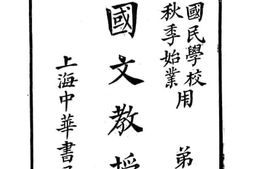 國民學校用
秋季始業
第
國文教授
上海中華書局